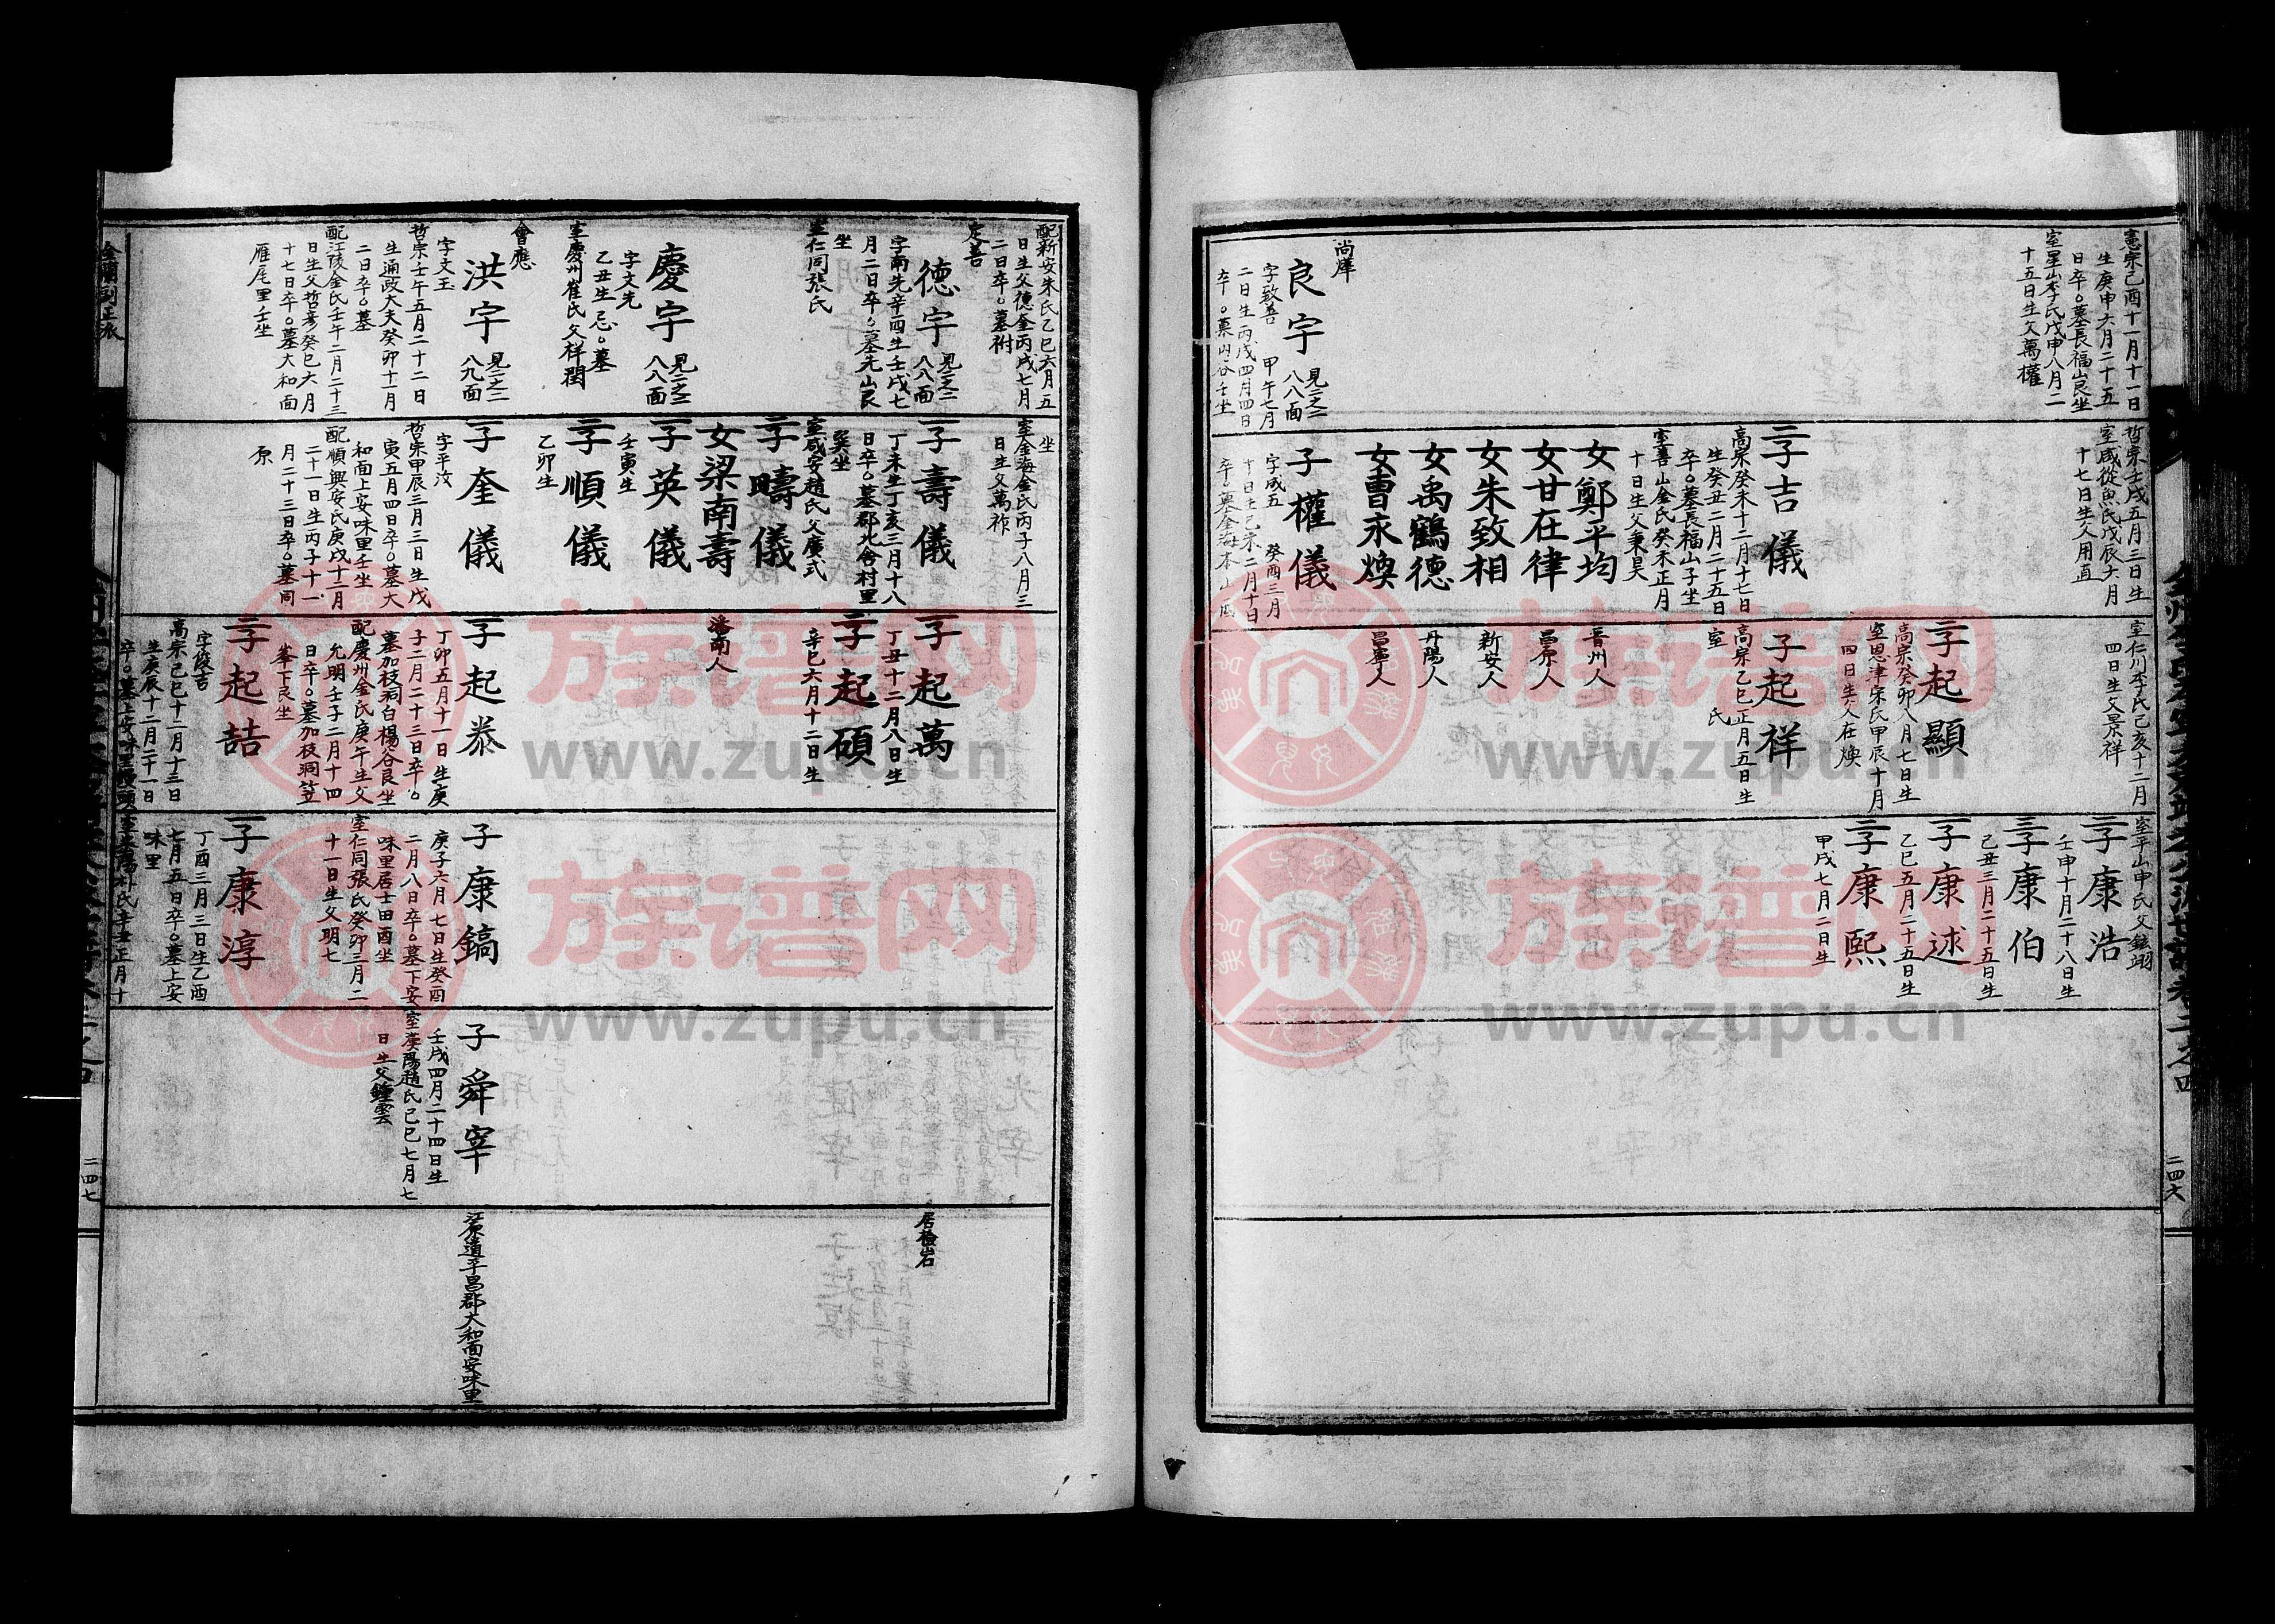 憲宗己酉十一月十一日
生庚申六月二十五
日卒○墓長福山艮坐
室星山李氏戊申八月二
十五日生父萬權
尚燁
良宇
見二之二
八八面
字致善
甲午七月
二日生丙戌四月四日
哲宗壬戌五月三日生
室咸從魚氏戊辰六月
十七日生父用直
二子吉儀
高宗癸未十二月十七日
生癸丑二月二十五日
卒○墓長福山子坐
室善山金氏癸未正月
十日生父秉昊
女鄭平均
女甘在律
女朱致相
女禹鶴德
女曹永煥
子權儀
字成五
癸酉三月
室仁川李氏己亥十二月
四日生父景祥
二子起顯
高宗癸卯八月七日生
室恩津宋氏甲辰十月
四日生父在煥
子起祥
高宗乙巳正月五日生
室 氏
晋州人
昌原人
新安人
丹陽人
昌寧人
室平山申氏父鉉翊
二子康浩
壬申十月二十八日生
三子康伯
己丑三月二十五日生
一子康述
乙巳五月二十五日生
二子康熙
甲戌七月二日生
二四六
配新安朱氏乙巳六月五
日生父德奎丙戌七月
二日卒○墓祔
定善
德宇
見二之二
八八面
字南先辛酉生壬戌七
月二日卒○墓先山艮
坐
室仁同張氏
慶宇
見二之二
八八面
字文光
乙丑生忌○墓
室慶州崔氏父祥閏
會應
洪宇
見二之三
八九面
字文玉
哲宗壬午五月二十二日
生通政大夫癸卯十一月
二日卒○墓
配江陵金氏壬午二月二十三
日生父哲彦癸巳六月
十七日卒○墓大和面
雁尾里壬坐
坐
室金海金氏丙子八月三
日生父萬祚
一子壽儀
丁未生丁亥三月十八
日卒○墓郡北舍村里
巽坐
室咸安趙氏父廣式
二子疇儀
女梁南壽
一子英儀
壬寅生
二子順儀
乙卯生
一子奎儀
字平汝
哲宗甲辰三月三日生戊
寅五月四日卒○墓大
和面上安味里壬坐
配順興安氏庚戌十二月
二十一日生丙子十一
月二十三日卒○墓同
原
一子起萬
丁丑十二月八日生
二子起碩
辛巳六月十二日生
洛南人
一子起泰
丁卯五月十一日生庚
子二月二十三日卒○
墓加枝洞白楊谷艮坐
配慶州金氏庚午生父
允明壬子二月十四
日卒○墓加枝洞笠
峯下艮坐
二子起喆
字俊吉
高宗己巳十二月十三日
生庚辰十二月二十一日
子康鎬
庚子六月七日生癸酉
二月八日卒○墓下安
味里居士田酉坐
室仁同張氏癸卯三月二
十一日生父明七
一子康淳
丁酉三月三日生乙酉
七月五日卒○墓上安
味里
子舜宰
壬戌四月二十四日生
室漢陽趙氏己巳七月七
日生父鍾雲
居檜岩
江原道平昌郡大和面安味里
二四七
族谱网
www.zupu.cn
族谱网
www.zupu.cn
族谱网
www.zupu.cn
族谱网
www.zupu.cn